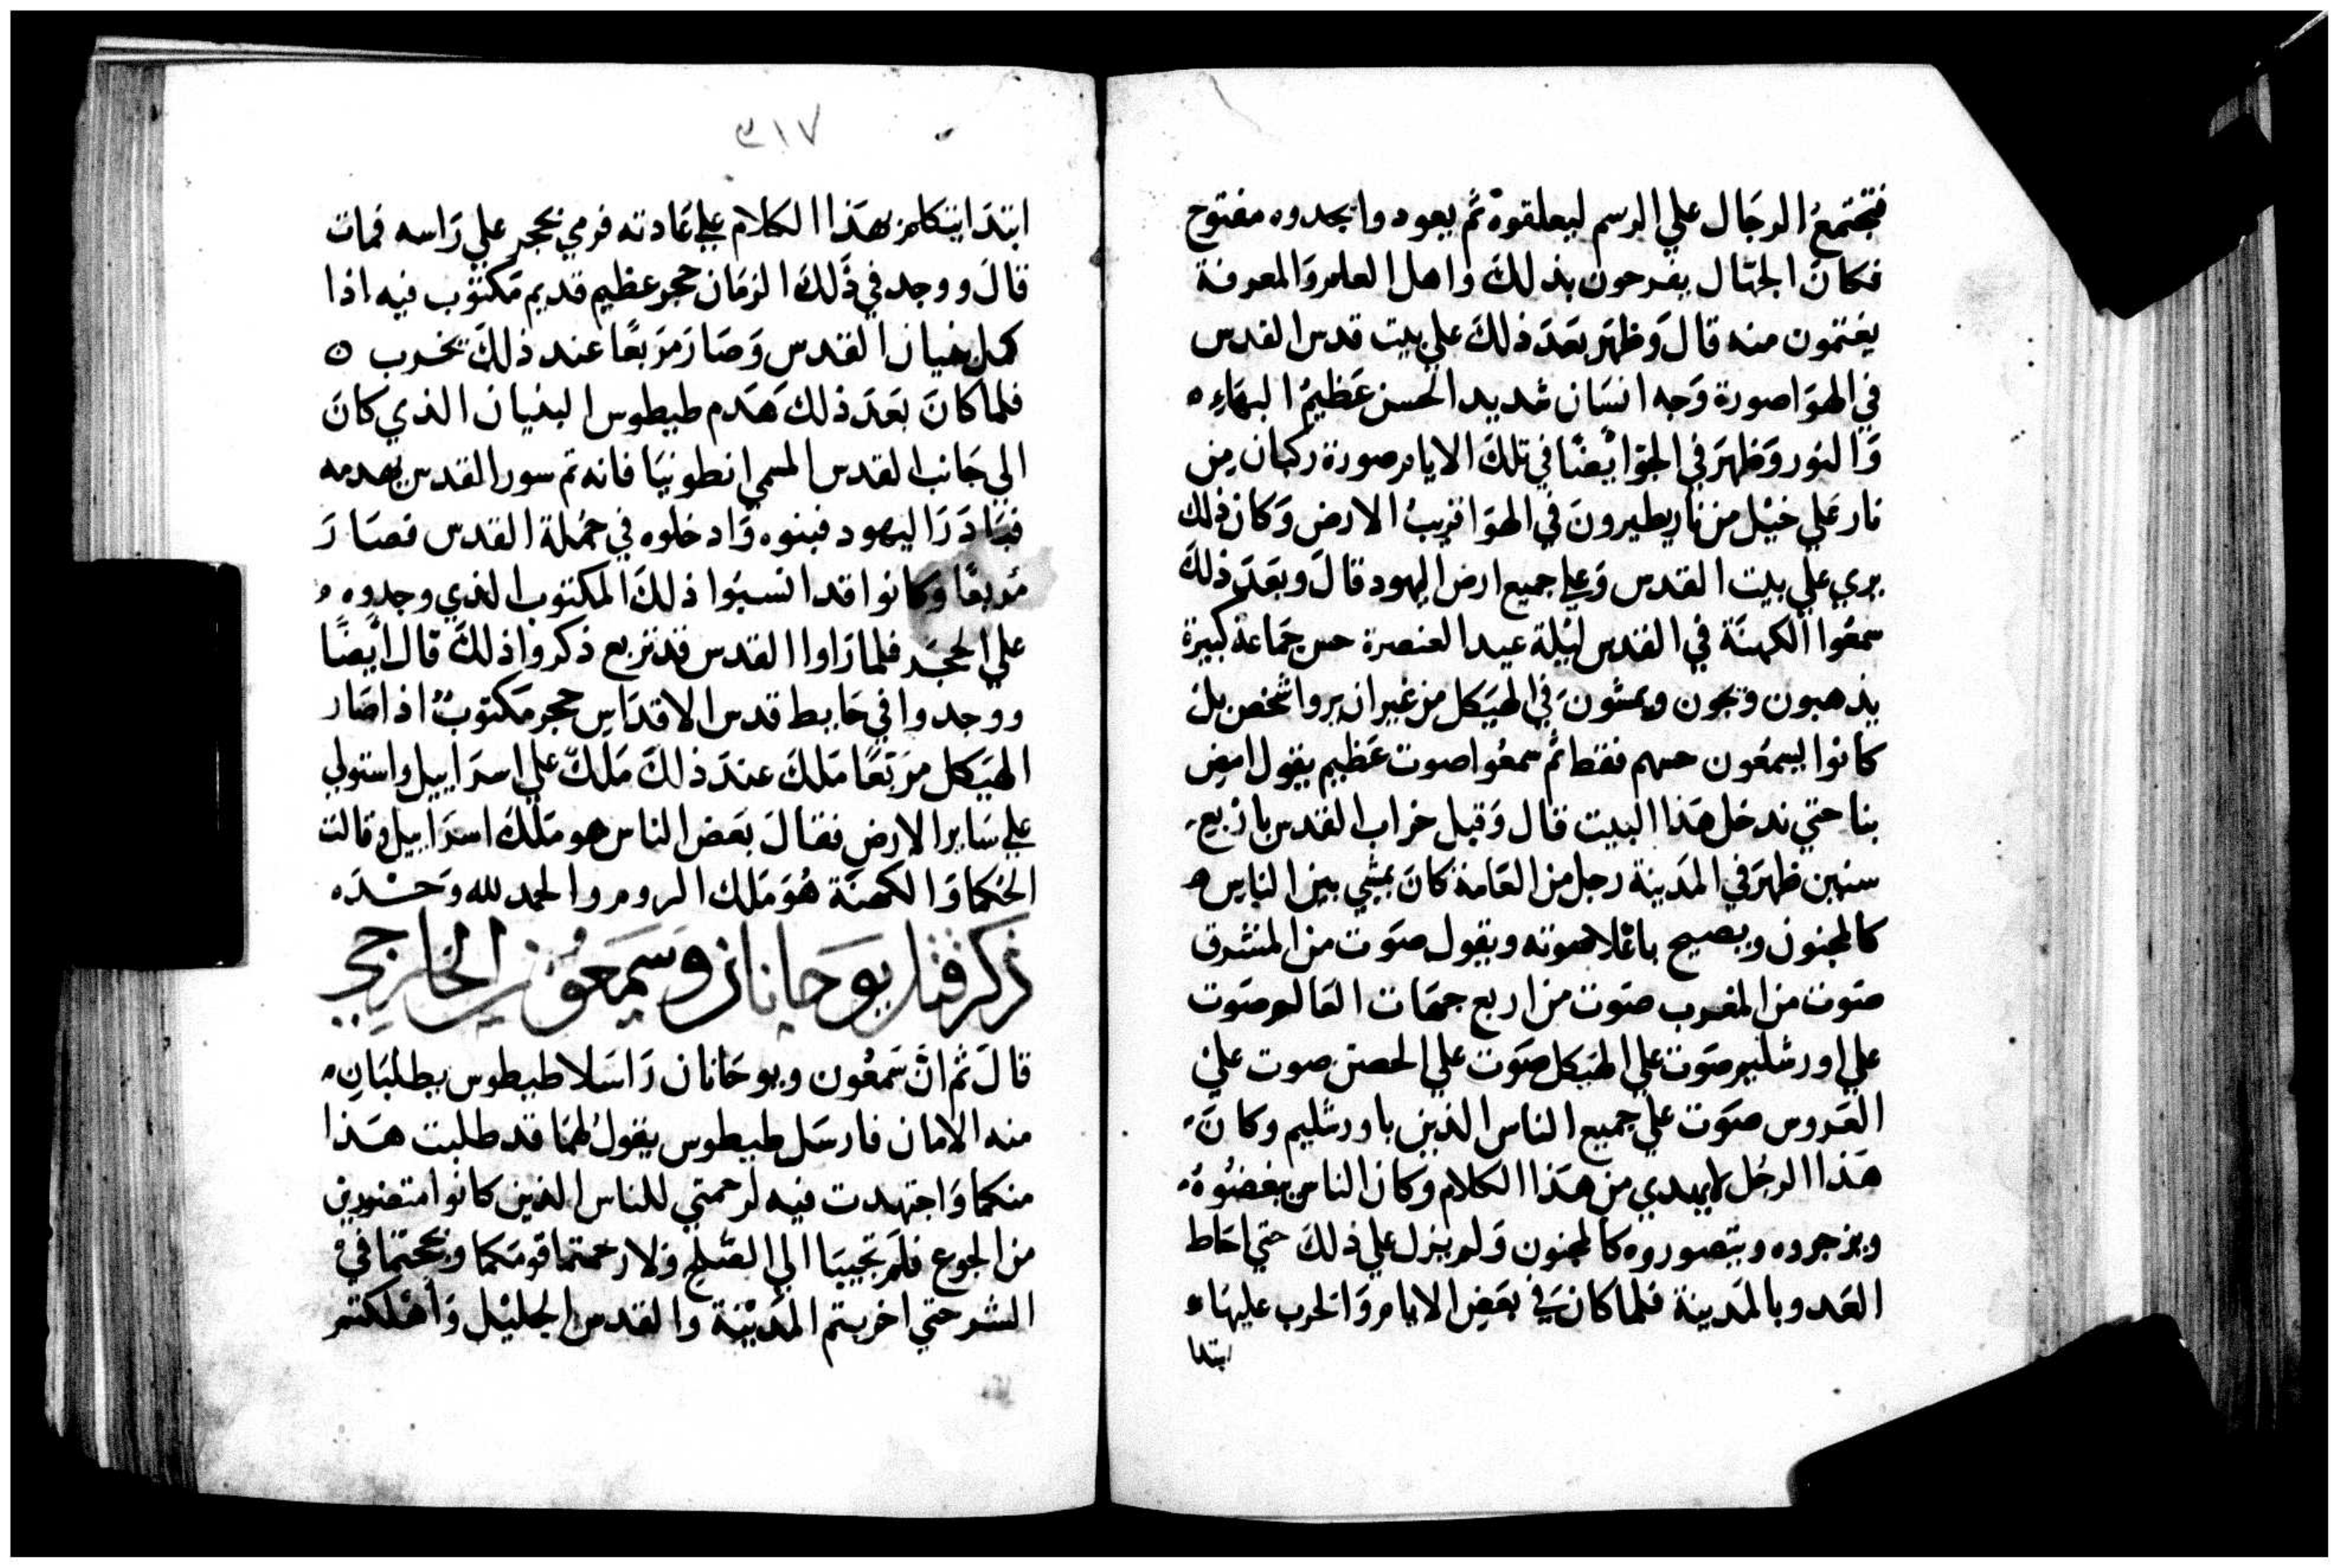 فتجتمع الرجال علي الرسم ليعلقوه ثم يعود وايجدوه مفتوح
فكان الجهال يفرحون بذلك واهل العلم والمعرفة
يغتمون منه قال وظهر بعد ذلك علي بيت قدس القدس
في الهوا صورة وجه انسان شديد الحسن عظيم البهاء
والنور وظهر في الجو ايضا في تلك الايام صورة ركبان من
نار علي خيل من نار يطيرون في الهوا قريب الارض وكان ذلك
يري علي بيت القدس وعلي جميع ارض اليهود قال وبعد ذلك
سمعوا الكهنة في القدس ليلة عيد العنصرة حس جماعة كبيرة
يذهبون ويجون ويمشون في الهيكل من غير ان يروا شخص بل
كانوا يسمعون حسهم فقط ثم سمعوا صوت عظيم يقول امض
بنا حتي ندخل هذا البيت قال وقبل خراب القدس باربع
سنين ظهر في المدينة رجل من العامة كان يمشي بين الناس
كالمجنون ويصيح باعلا صوته ويقول صوت من المشرق
صوت من المغرب صوت من اربع جهات العالم صوت
علي اورشليم صوت علي الهيكل صوت علي الحصن صوت علي
العروس صوت علي جميع الناس الذين باورشليم وكان
هذا الرجل لا يهدي من هذا الكلام وكان الناس يبغضوه
ويزجروه ويتصوروه كالمجنون ولم يزل علي ذلك حتي احاط
العدو بالمدينة فلما كان في بعض الايام والحرب عليها
ابتدا
٣١٧
ابتدا يتكلم بهذا الكلام علي عادته فرمي بحجر علي راسه فمات
قال ووجد في ذلك الزمان حجر عظيم قديم مكتوب فيه اذا
كمل بنيان القدس وصار مربعا عند ذلك يخرب ٥
فلما كان بعد ذلك هدم طيطوس البنيان الذي كان
الي جانب القدس المسمي انطونيا فانه تم سور القدس بهدمه
فبادرا اليهود فبنوه وادخلوه في جملة القدس فصار
مربعا وكانوا قد انسيوا ذلك المكتوب الذي وجدوه
علي الحجر فلما راوا القدس قد تربع ذكروا ذلك قال ايضا
ووجدوا في حايط قدس الاقداس حجر مكتوب اذا صار
الهيكل مربعا ملك عند ذلك ملك علي اسراييل واستولي
علي ساير الارض فقال بعض الناس هو ملك اسراييل وقالت
الحكما والكهنة هو ملك الروم والحمد لله وحده
ذكر قتل يوحانان وسمعون الخارجي
قال ثم ان سمعون ويوحانان راسلا طيطوس يطلبان
منه الامان فارسل طيطوس يقول لهما قد طلبت هذا
منكما واجتهدت فيه لرحمتي للناس الذين كانوا متضورين
من الجوع فلم تجيبا الي الصلح ولا رحمتما قومكما ونجحتما في
الشر حتي اخربتم المدينة والقدس الجليل واهلكتم